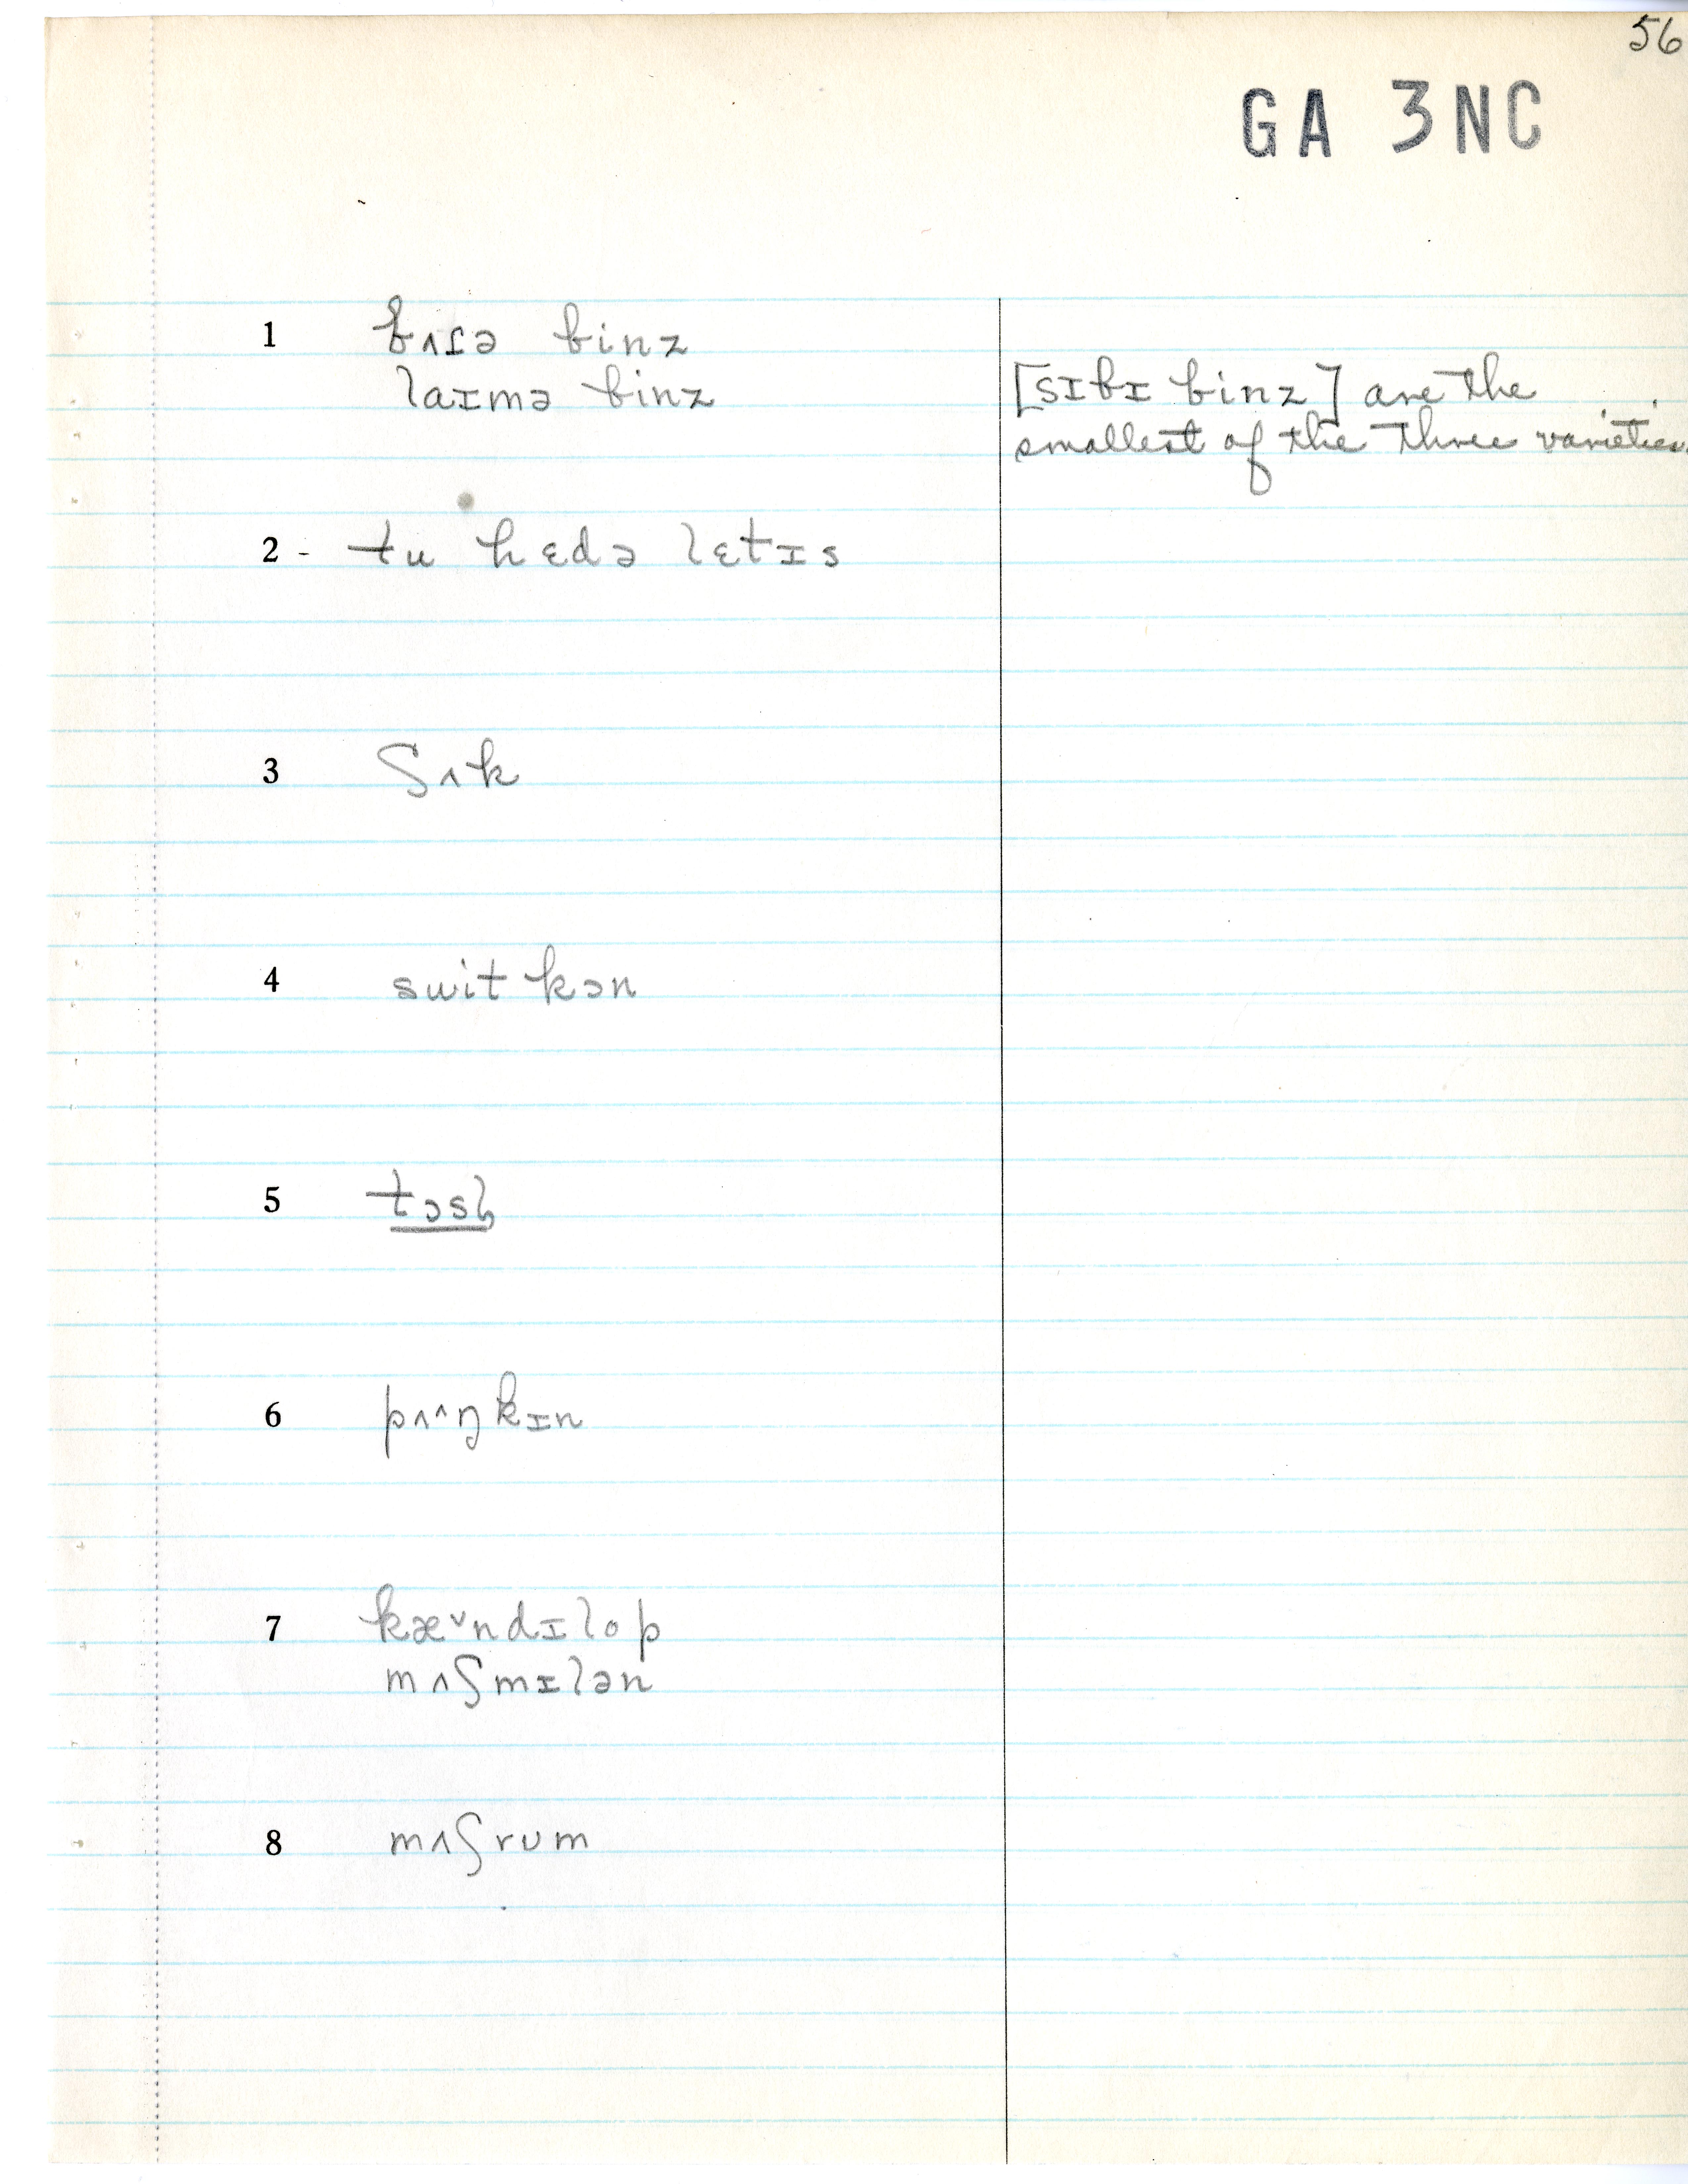 56
GA 3NC
1 bʌɾə binz
laɪmə binz
[sɪbɪ binz] are the
smallest of the three varieties.
2 - tu hɛdə lɛtɪs
3 ʃʌk
4 swit kɔn
5 tɔsl̩
6 pʌ^ŋkɪn
7 kæ˅ndɪlop
mʌʃmɪlən
8 mʌʃrum